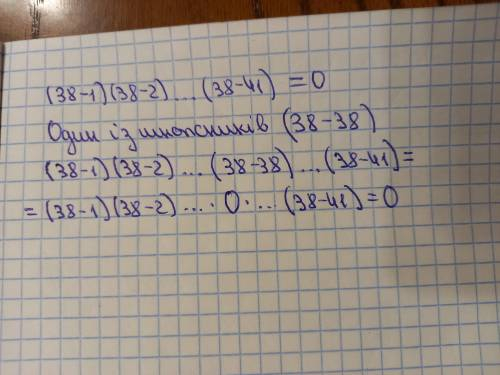 (38-1)(38-2)...(38-41) = 0
Один із множників (38-38)
(38-1)(38-2)...(38-38)...(38-41)=
= (38-1)(38-2)....·0·...(38-41)=0